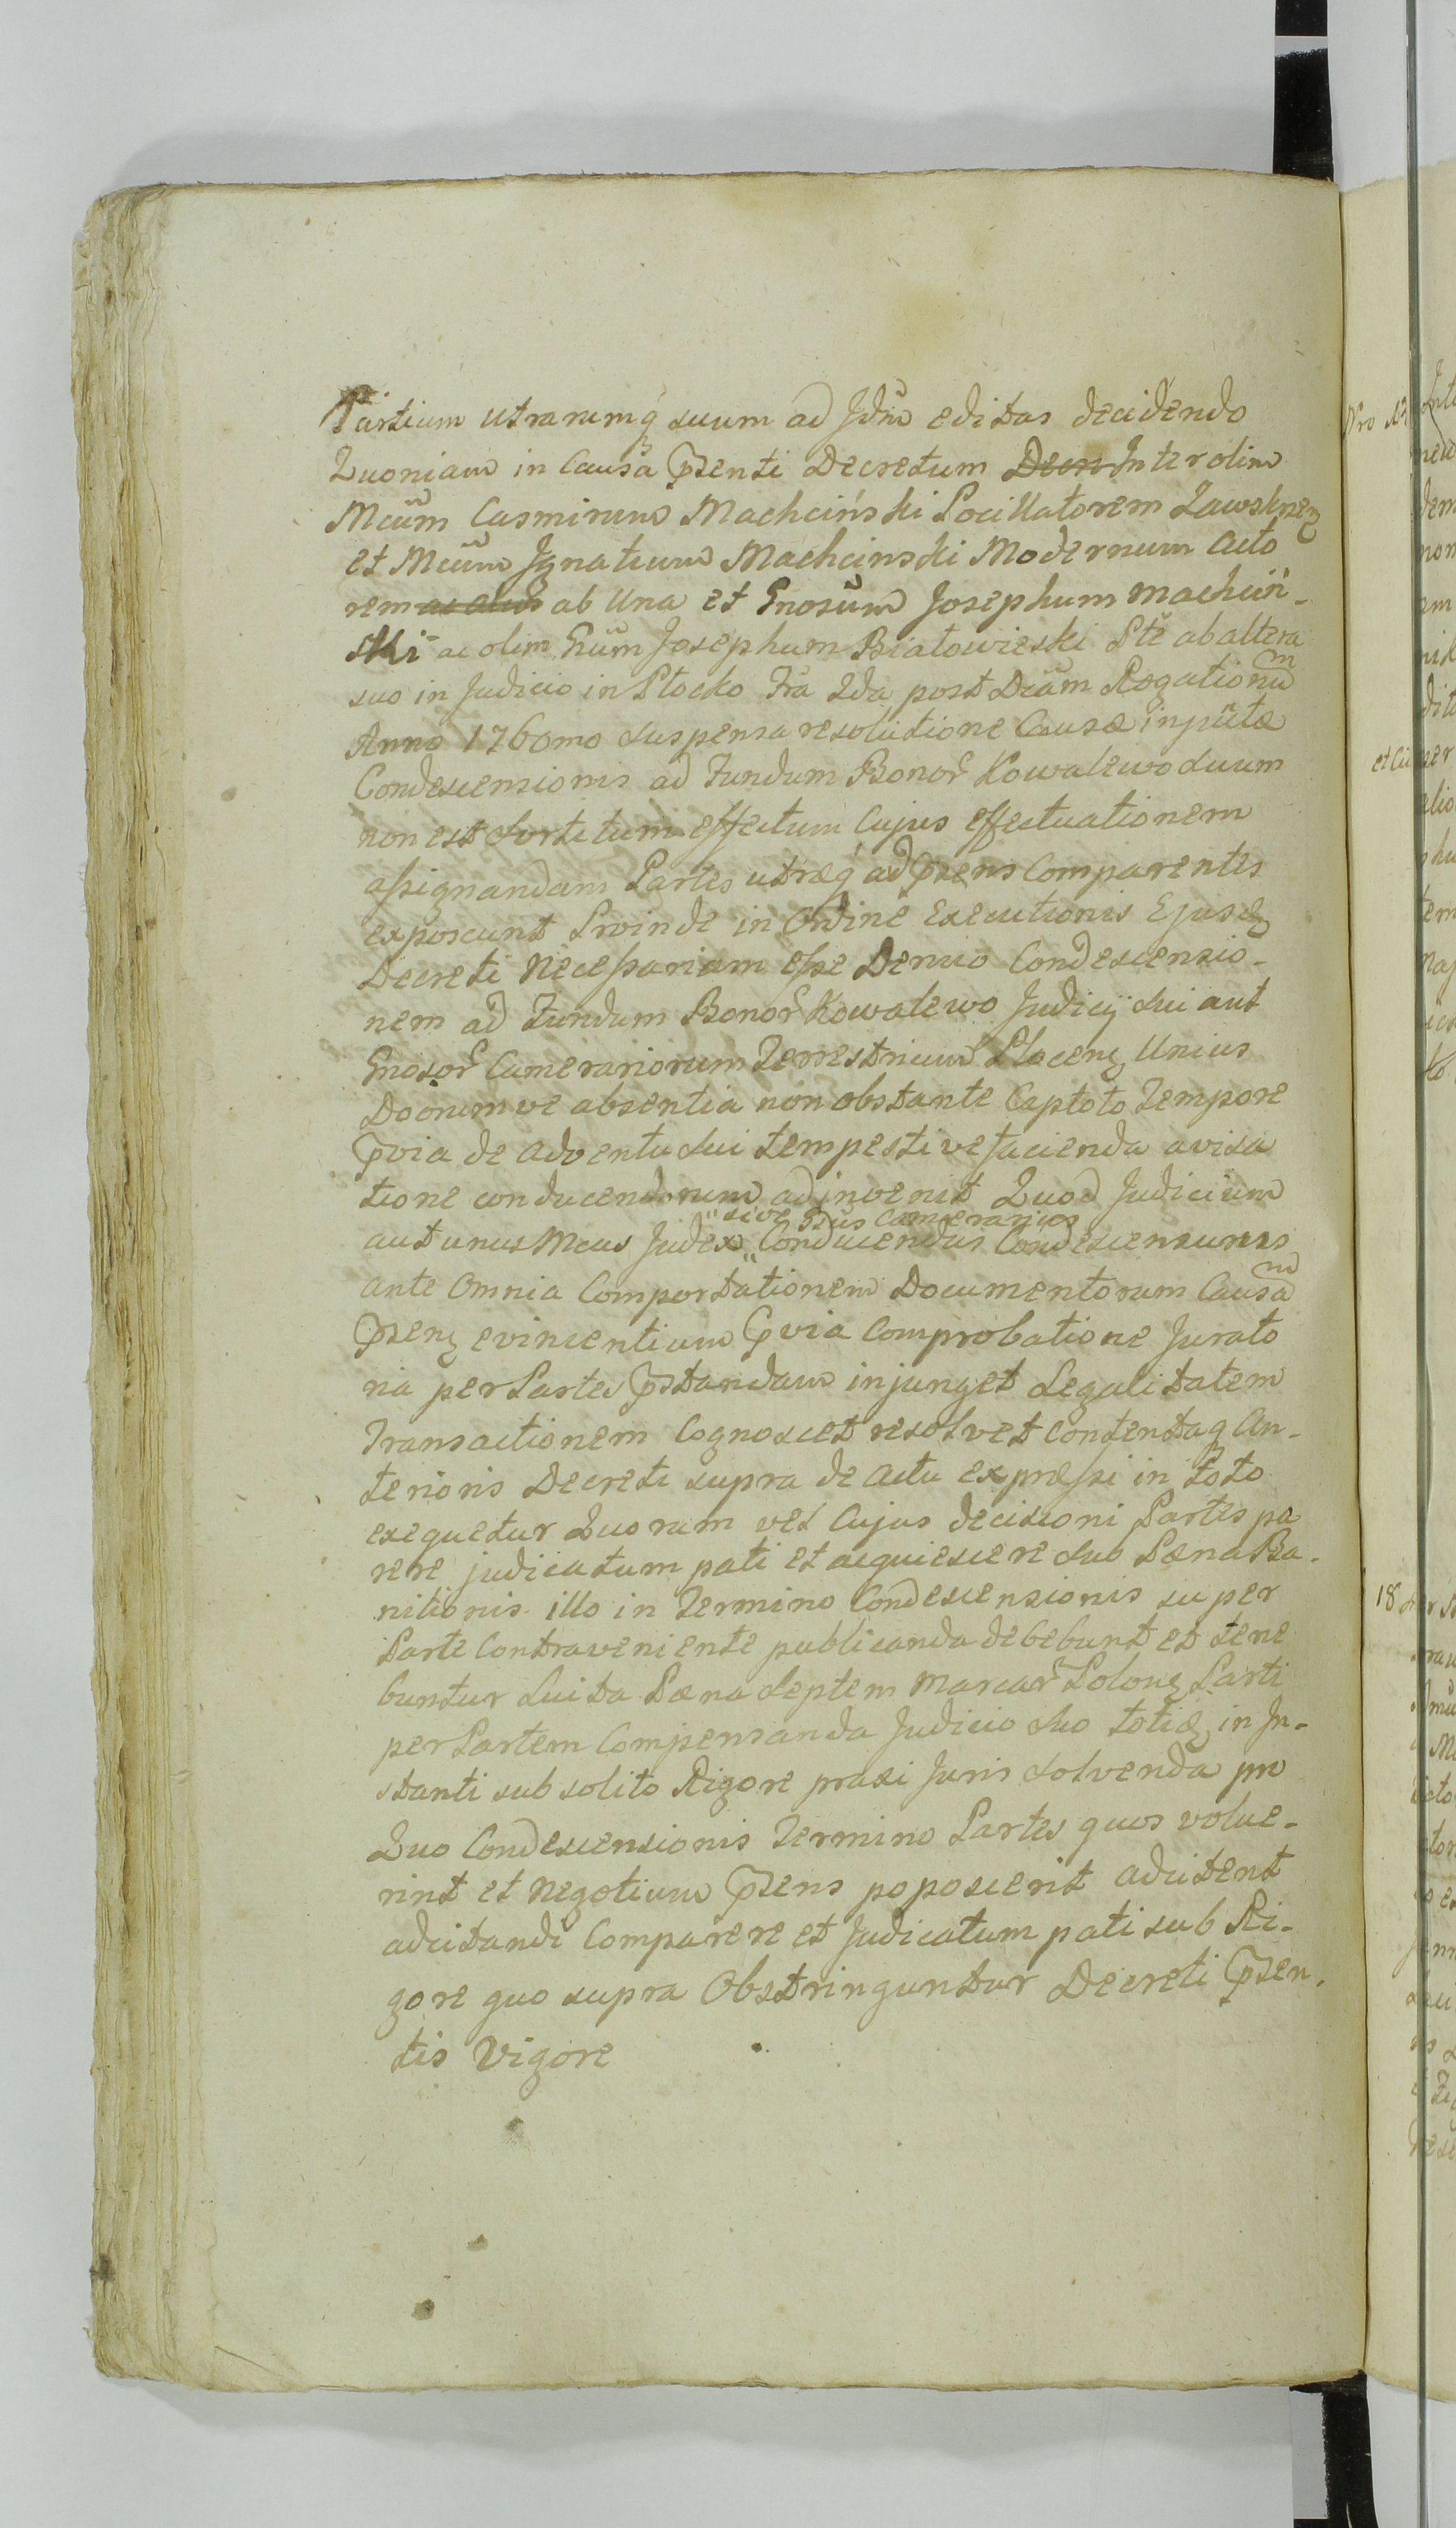 Partium utrarumq̃ suum ad Jdm̃ editas decidendo
Quoniam in Causa p̃senti Decretum Decre Inter olim
Mcũm Casmirum Machciński Pocillatorem Zawskrzeq
et Mcũm Jgnatium Machcinski Modernum Acto
rem ab Una et Gnosũm Josephum Machciń-
ski ac olim Gũm Josephum Białowieski Pte ab altera
suo in Judicio in Płocko Fra 2da post Dcãm Rogationum
Anno 1760mo suspensa resolutione Causæ inpũtæ
Condescensionis ad Fundum Bonor̃ Kowalewo suum
non est sortitum effectum Cujus effectuationem
assignandam Partes utræq̃ ad p̃sens Comparentes
exposcunt Proinde in Ordine Executionis Ejusq
Decreti Necessariam esse Denuo Condescensio-
nem ad Fundum Bonor̃ Kowalewo Judicij sui aut
Gnosor̃ Camerariorum Terrestrium Plocenq Unius
Duorumve absentia non obstante Captoto Tempore
p̃via de adventu sui tempestive facienda avisa
tione conducendorum adinvenit Quod Judicium
"sive Gũs Camerarius
aut unus Mcus Judex " Conducendus Condescensurus
ante Omnia Comportationem Documentorum Causam
p̃senq evincentium p̃via Comprobatione Jurato
ria per Partes p̃standam injunget Legalitatem
Transactionem Cognoscet resolvet contentaq An-
terioris Decreti supra de actu expressi in toto
exequetur Quorum vel Cujus decisioni Partes pa
rere judicatum pati et acquiescere sub Pæna Ba-
nitionis illo in Termino Condescensionis super
Parte Contraveniente publicanda debebunt et tene
buntur Luita Pæna septem Marcar̃ Polonq Parti
per Partem Compensanda Judicio suo totiq in In-
stanti sub solito Rigore praxi Juris solvenda pro
Quo Condescensionis Termino Partes quos volue-
rint et Negotium p̃sens poposcerit adcitent
adcitandi Comparere et Judicatum pati sub Ri-
gore quo supra Obstringuntur Decreti p̃sen-
tis Vigore